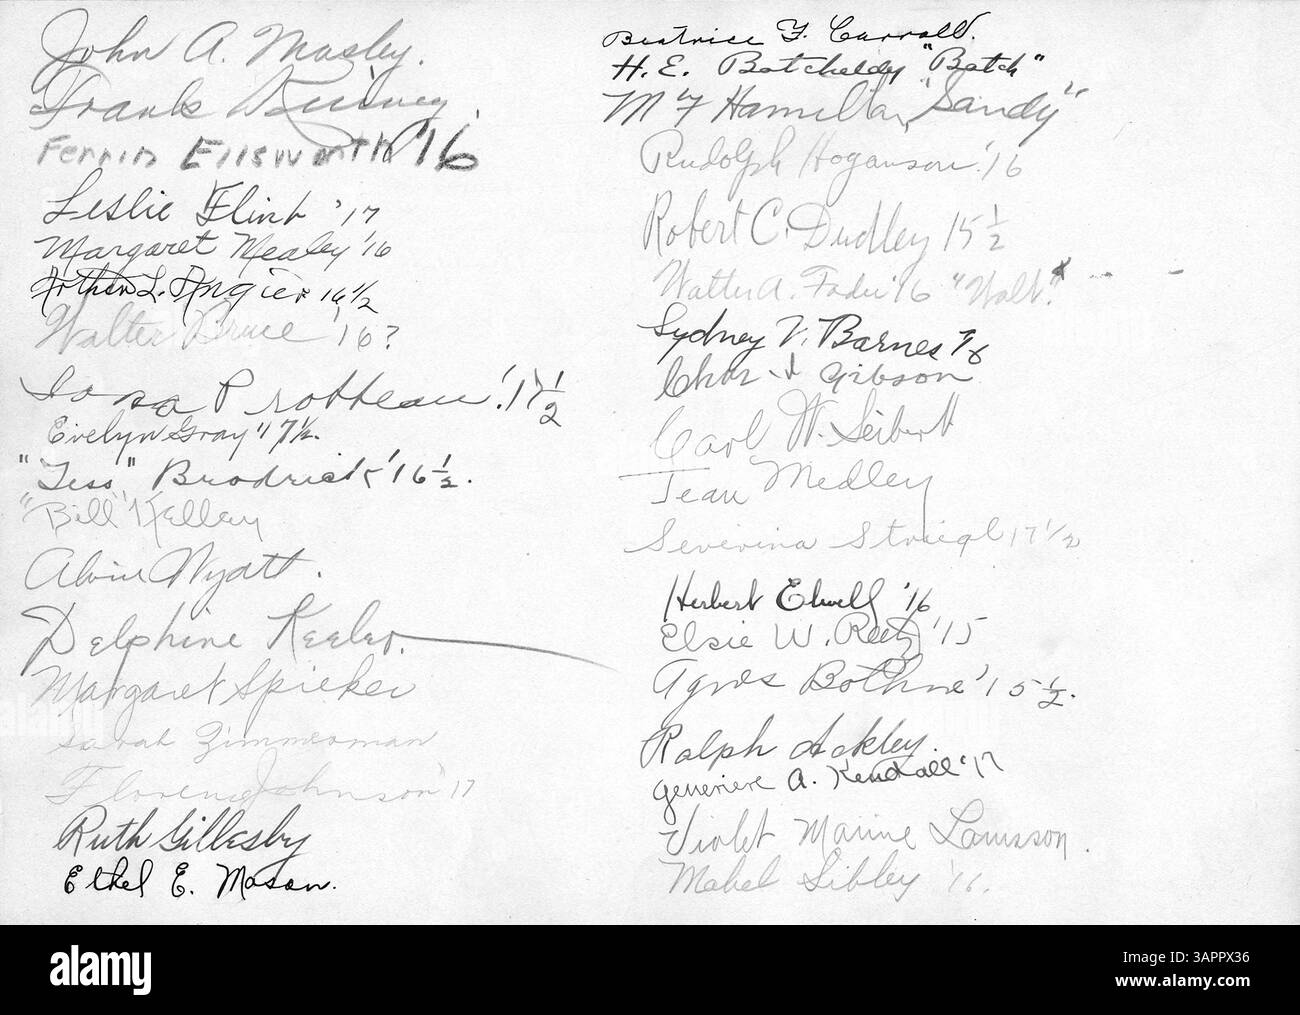 John A. Mosley.
Frank
Ferrin Ellsworth '16
Leslie Flint '17
Margaret Mealey '16
Arthur L. Angier 16 1/2
Walter Bruce '16?
Protteau '17 1/2
Evelyn Gray '17 1/2.
"Tess" Brodrick '16 1/2.
"Bill" Kelley
Alvin Wyatt.
Delphine Keeler.
Margaret Spieker
Sarah Zimmerman
Florence Johnson '17
Ruth Gillesby
Ethel E. Mason.
Beatrice F. Carroll.
H. E. Batchelder "Batch"
"Sandy"
Rudolph Hoganson '16
Robert C. Dudley 15 1/2
Walter A. '16 "Walt"
Sydney V. Barnes
Chas Gibson
Carl W. Seibert
Jean Medley
Severina Striegl 17 1/2
Herbert Elwell '16
Elsie W. Reetz '15
Agnes Bothne '15 1/2.
Ralph Ackley.
Genevieve A. Kendall '17
Violet Marine Lamsson.
Mabel Sibley '16.
alamy
Image ID: 3APPX36
www.alamy.com